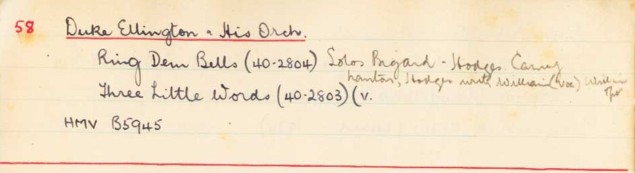 58 Duke Ellington & His Orch.
Ring Dem Bells (40-2804) Solos Bigard - Hodges Carney
Nanton, Hodges with William (Voc) William
Three Little Words (40-2803) (v.
HMV B5945